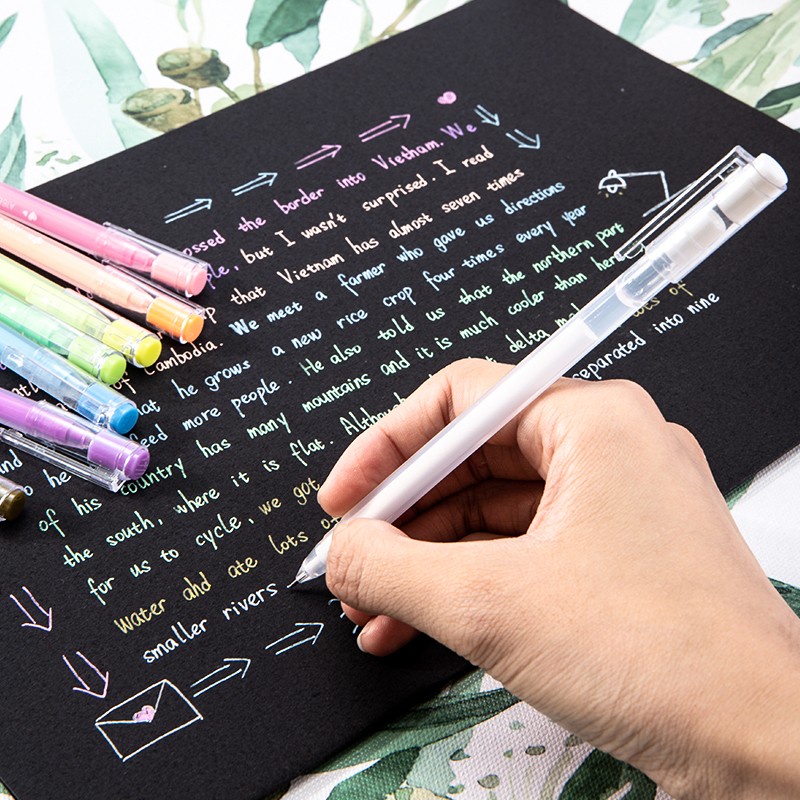 ossed the border into Vietnam. We
ple, but I wasn't surprised. I read
that Vietnam has almost seven times
of Cambodia. We meet a farmer who gave us directions
hat he grows a new rice crop four times every year
eed more people. He also told us that the northern part
of his country has many mountains and it is much cooler than her
the south, where it is flat. Although delta lots of
for us to cycle, we got separated into nine
water and ate lots of
smaller rivers